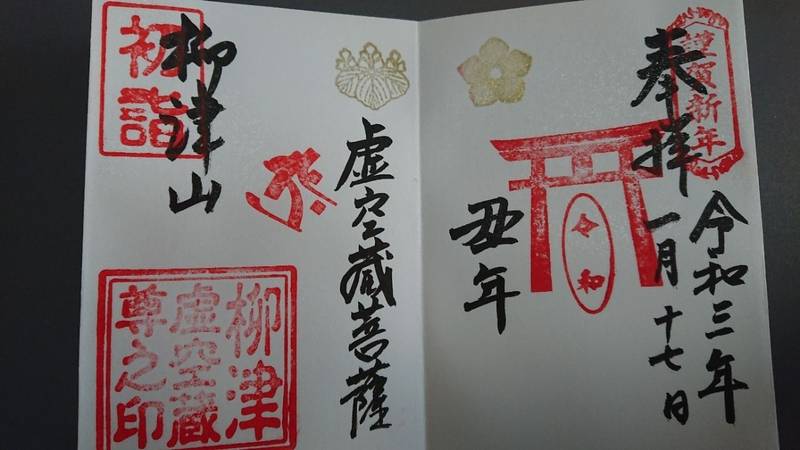 謹賀新年
奉拝
令和三年
一月十七日
令和
丑年
虚空蔵菩薩
柳津山
初詣
柳津
虚空蔵
尊之印